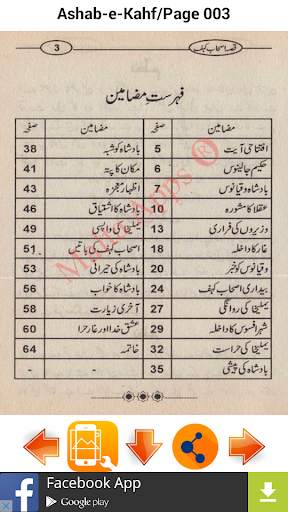 Ashab-e-Kahf/Page 003
قصہ اصحاب کہف 3
فہرست مضامین
مضامین صفحہ مضامین صفحہ
افتتاحی آیت 5 بادشاہ کو شبہ 38
حکیم جالینوس 6 مکان کا پتہ 41
بادشاہ دقیانوس 7 اظہار معجزہ 43
عقلا کا مشورہ 10 بادشاہ کا اشتیاق 46
وزیروں کی فراری 13 یملیخا کی واپسی 49
غار کا داخلہ 18 اصحاب کہف کی باتیں 51
دقیانوس کو خبر 20 بادشاہ کی حیرانی 53
بیداری اصحاب کہف 24 بادشاہ کا خواب 56
یملیخا کی روانگی 27 آخری زیارت 58
شہر افسوس کا داخلہ 29 عشق خدا اور غار حرا 60
یملیخا کی حراست 32 خاتمہ 64
بادشاہ کی پیشی 35 - -
Apps ®
Facebook App
Google play